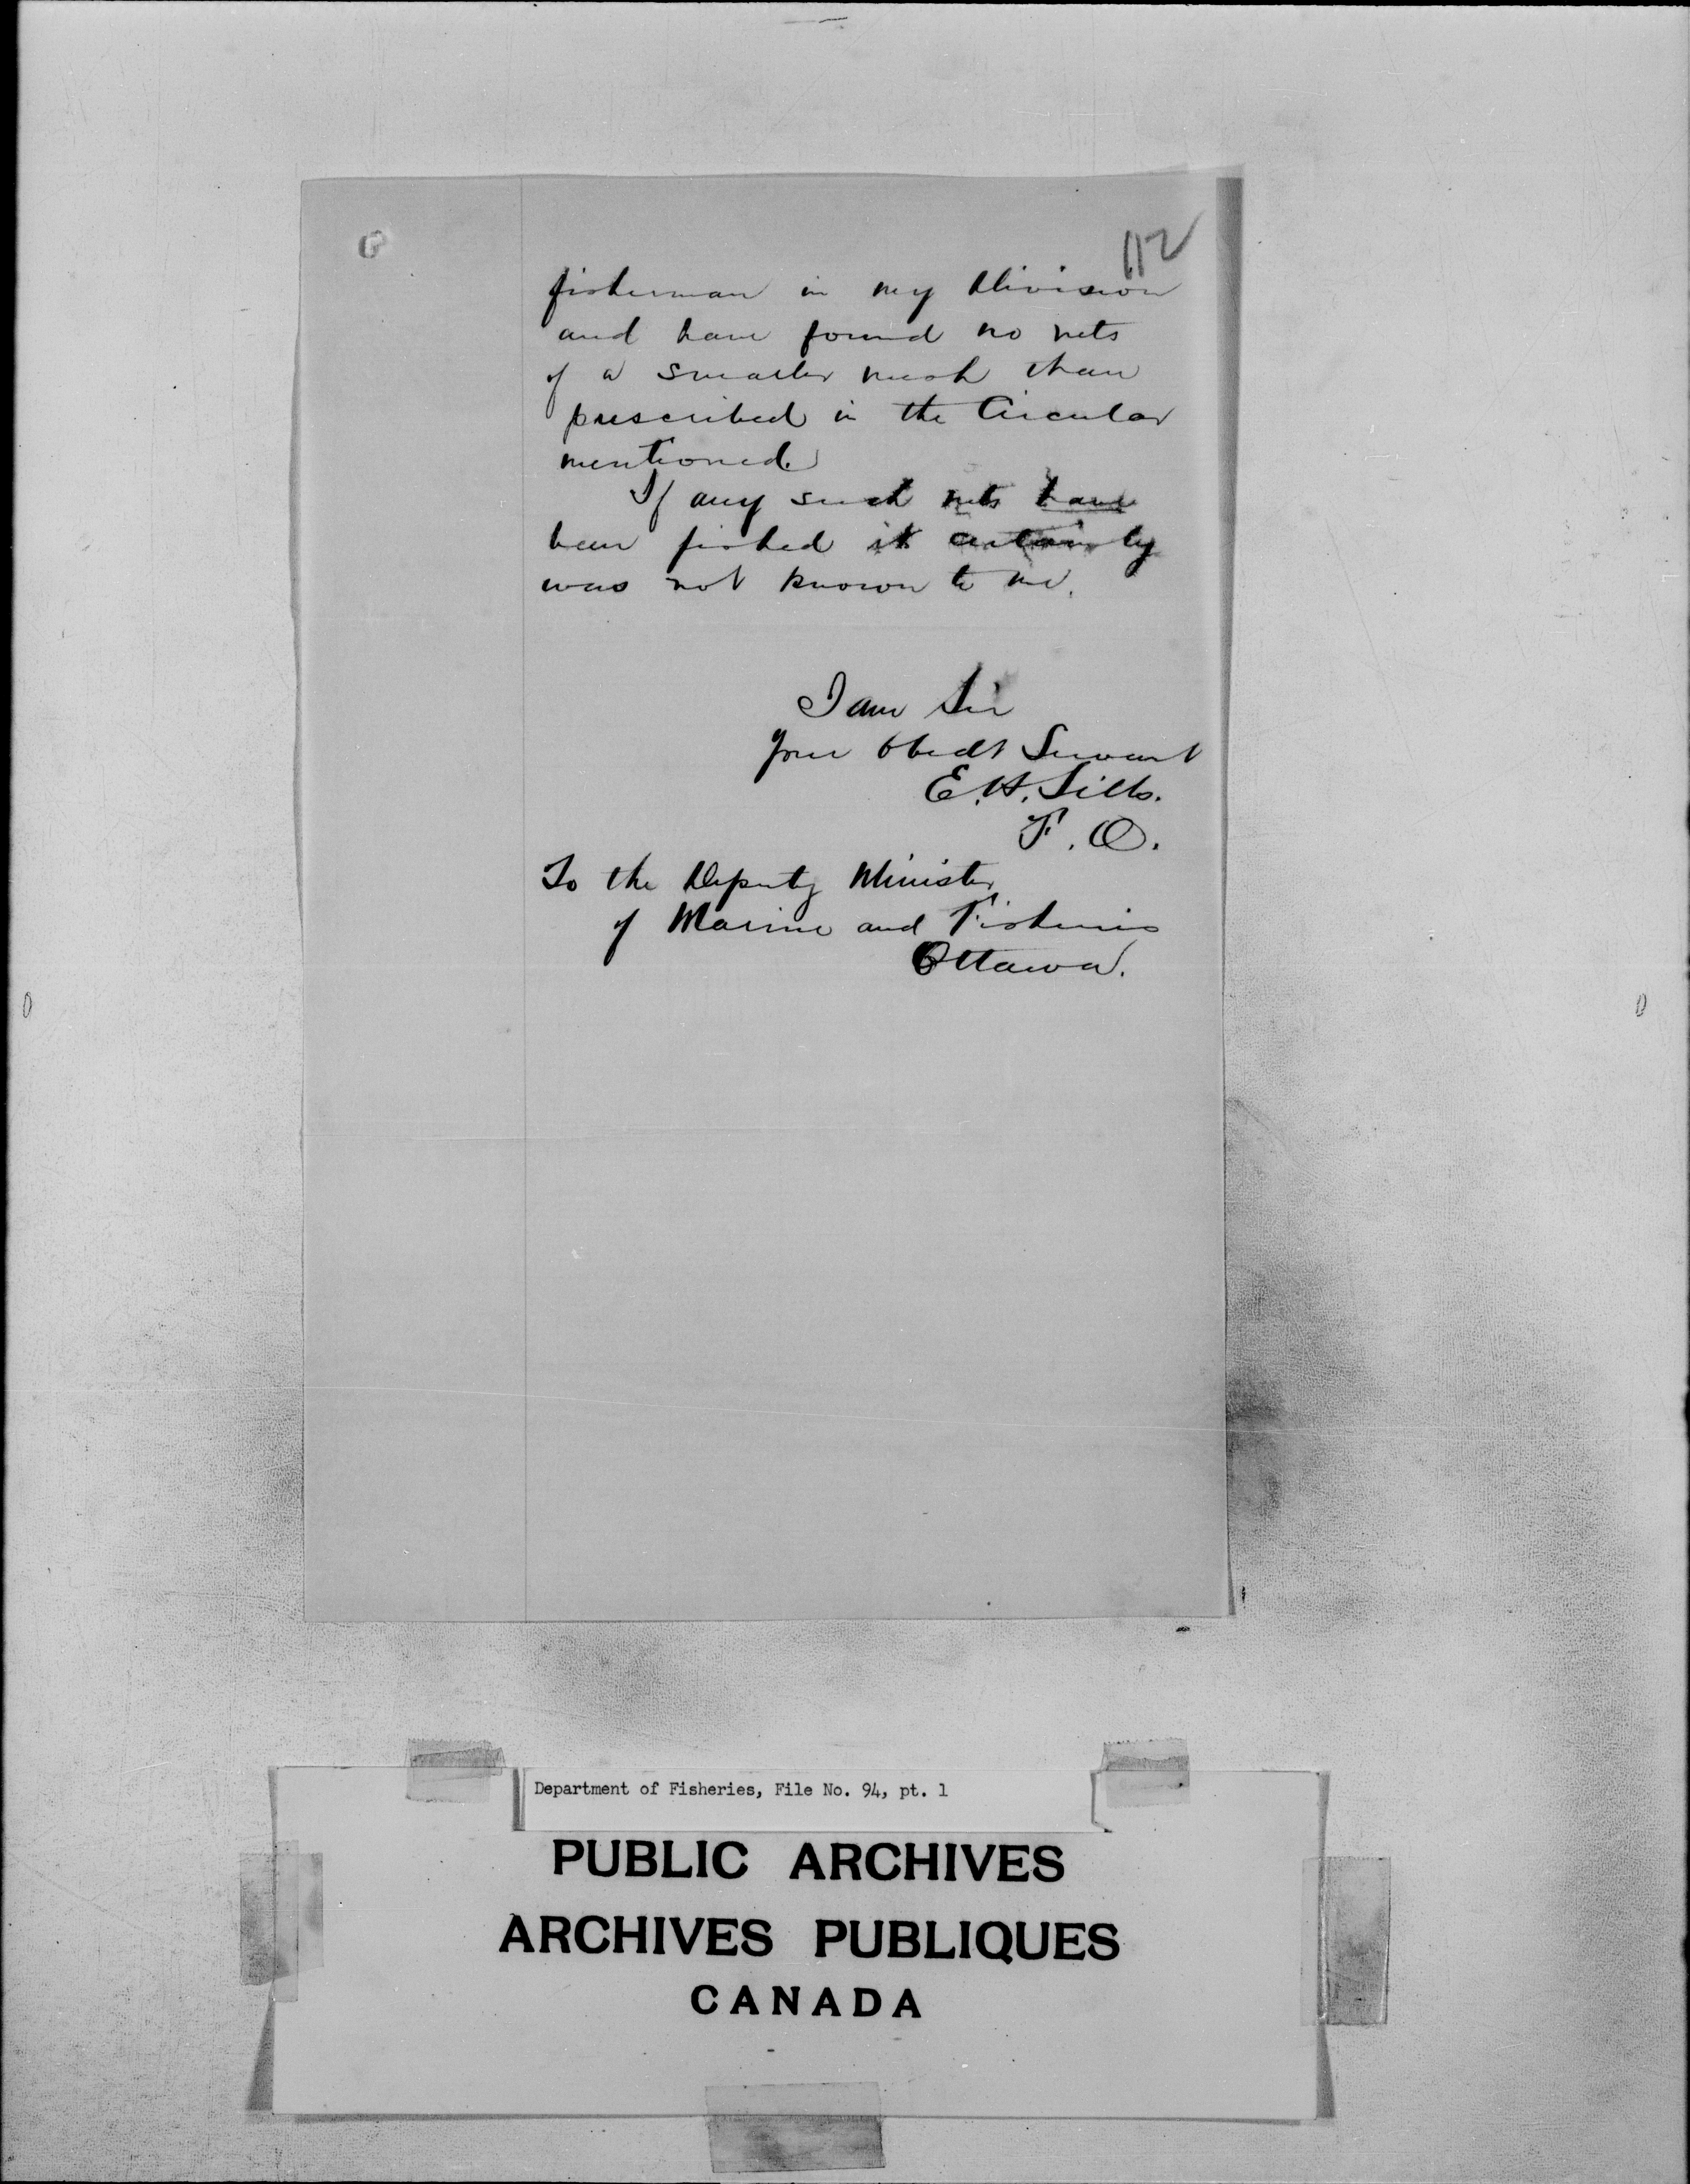 112
fisherman in my Division
and have found no nets
of a smaller mesh than
prescribed in the Circular
mentioned
If any such nets have
been fished it certainly
was not known to me.
I am Sir
Your Obedt Servant
E. H. Sills.
F. O.
To the Deputy Minister
of Marine and Fisheries
Ottawa.
Department of Fisheries, File No. 94, pt. 1
PUBLIC ARCHIVES
ARCHIVES PUBLIQUES
CANADA